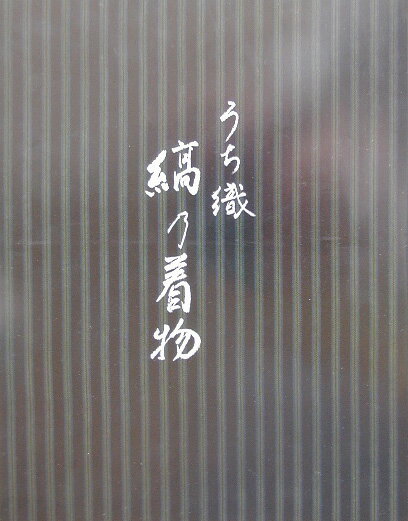 うち織
縞乃着物